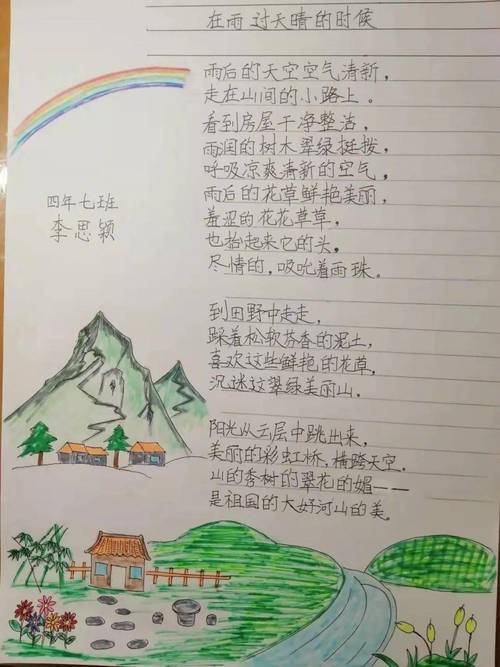 在雨过天晴的时候
雨后的天空空气清新，
走在山间的小路上。
看到房屋干净整洁，
雨润的树木翠绿挺拨，
呼吸凉爽清新的空气，
雨后的花草鲜艳美丽，
羞涩的花花草草，
也抬起来它的头，
尽情的，吸吮着雨珠。
四年七班
李思颖
到田野中走走，
踩着松软芬香的泥土，
喜欢这些鲜艳的花草，
沉迷这翠绿美丽山。
阳光从云层中跳出来，
美丽的彩虹桥，横跨天空.
山的秀树的翠花的媚——
是祖国的大好河山的美。